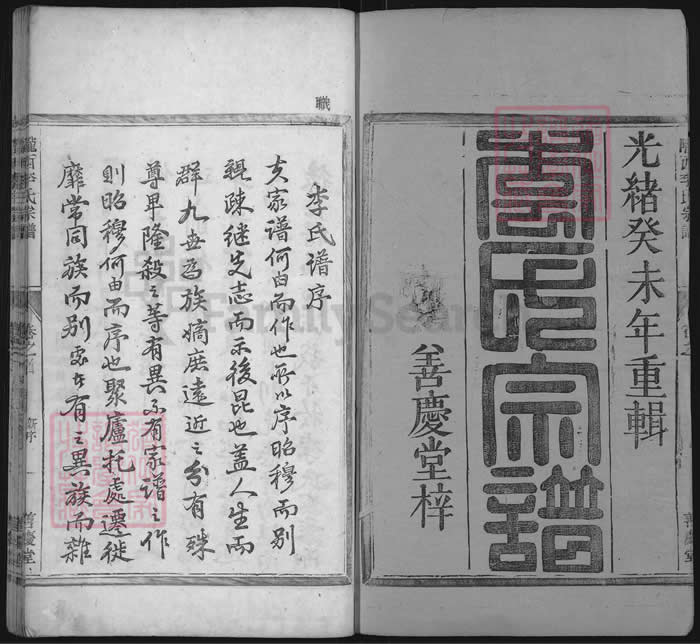 光緒癸未年重輯
李氏宗譜
善慶堂梓
職
李氏谱序
夫家谱何由而作也所以序昭穆而别
親疎继先志而示後昆也盖人生而
群九世為族嫡庶遠近之分有殊
尊卑隆殺之等有異不有家譜之作
則昭穆何由而序也聚廬托處遷徙
靡常同族而别處者有之異族而雜
隴西李氏宗譜
卷之首
新序
善慶堂
FamilySearch